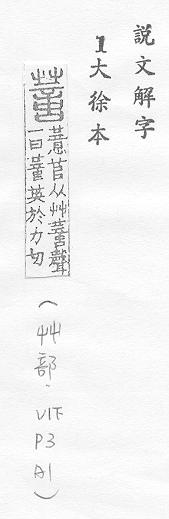 説文解字
1大徐本
苢从艸聲
一曰英於力切
(艸部.V1下
P3
A1)